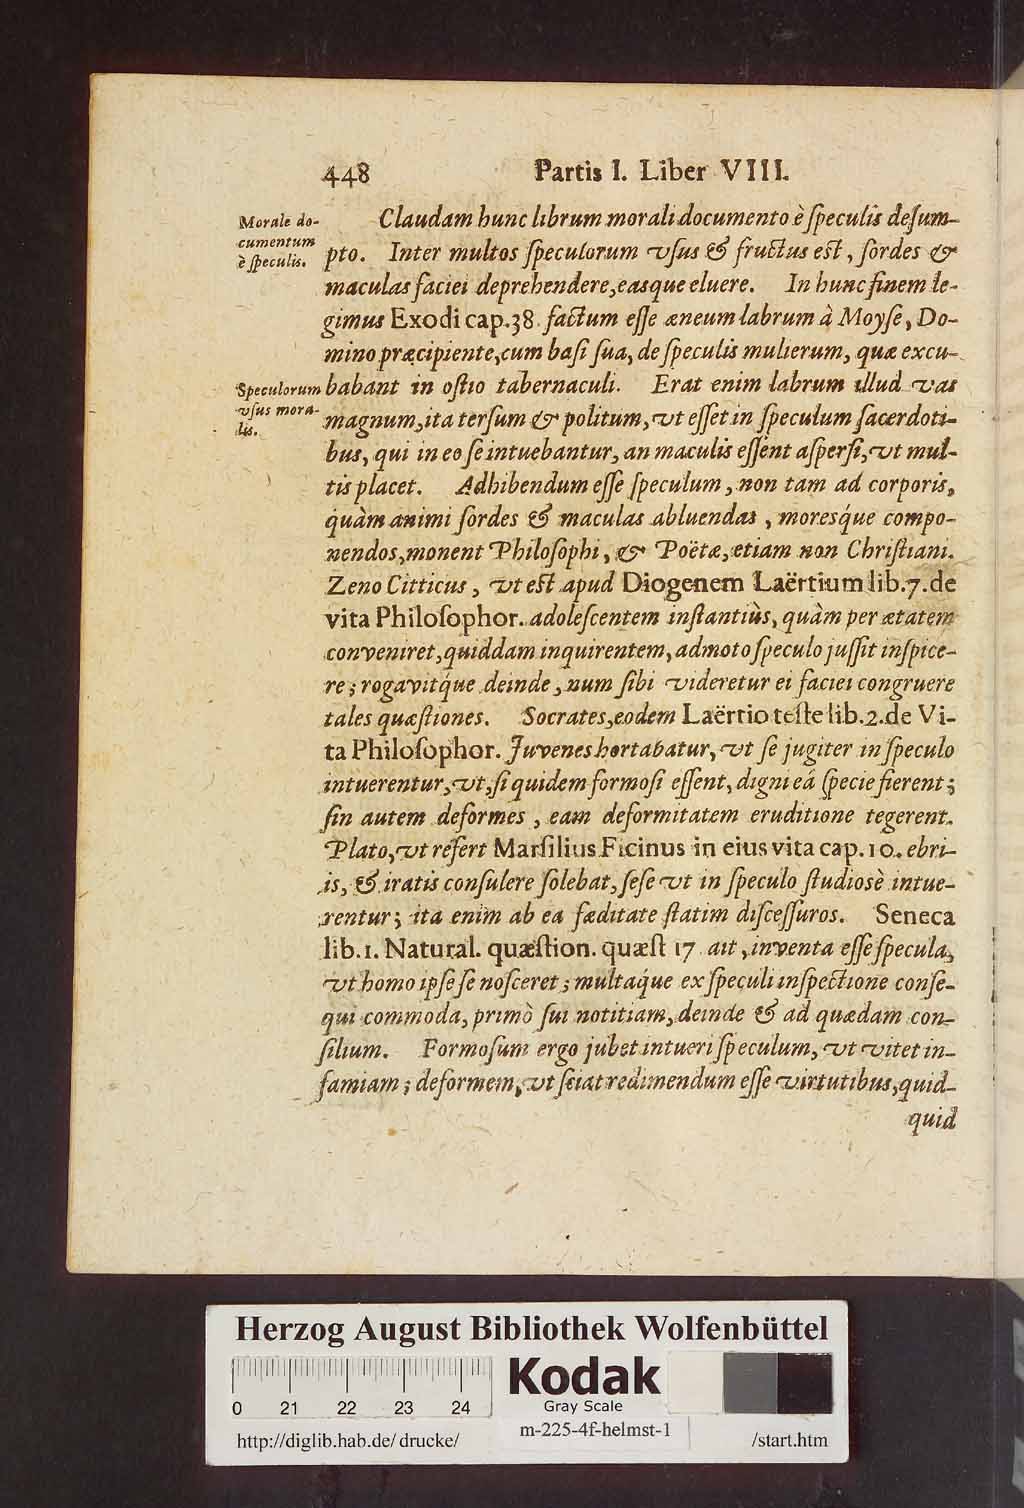 448 Partis I. Liber VIII.
Morale do-
cumentum
è ſpeculis.
Claudam hunc librum morali documento è ſpeculis deſum-
pto. Inter multos ſpeculorum vſus & fructus est, ſordes &
maculas faciei deprehendere, easque eluere. In hunc finem le-
gimus Exodi cap. 38. factum eſſe æneum labrum à Moyſe, Do-
mino præcipiente, cum baſi ſua, de ſpeculis mulierum, quæ excu-
Speculorum
vſus mora-
lis.
babant in oſtio tabernaculi. Erat enim labrum illud vas
magnum, ita terſum & politum, vt eſſet in ſpeculum ſacerdoti-
bus, qui in eo ſe intuebantur, an maculis eſſent aſperſi, vt mul-
tis placet. Adhibendum eſſe ſpeculum, non tam ad corporis,
quàm animi ſordes & maculas abluendas, moresq́ue compo-
nendos, monent Philoſophi, & Poëtæ, etiam non Chriſtiani.
Zeno Citticus, vt est apud Diogenem Laërtium lib. 7. de
vita Philoſophor. adoleſcentem inſtantiùs, quàm per ætatem
conveniret, quiddam inquirentem, admoto ſpeculo juſſit inſpice-
re; rogavitq́ue deinde, num ſibi videretur ei faciei congruere
tales quæſtiones. Socrates, eodem Laërtio teſte lib. 2. de Vi-
ta Philoſophor. Juvenes hortabatur, vt ſe jugiter in ſpeculo
intuerentur, vt, ſi quidem formoſi eſſent, digni eá ſpecie fierent;
ſin autem deformes, eam deformitatem eruditione tegerent.
Plato, vt refert Marſilius Ficinus in eius vita cap. 10. ebri-
is, & iratis conſulere ſolebat, ſeſe vt in ſpeculo ſtudiosè intue-
rentur; ita enim ab ea fæditate ſtatim diſceſſuros. Seneca
lib. 1. Natural. quæſtion. quæſt 17 ait, inventa eſſe ſpecula,
vt homo ipſe ſe noſceret; multaq́ue ex ſpeculi inſpectione conſe-
qui commoda, primò ſui notitiam, deinde & ad quædam con-
ſilium. Formoſum ergo jubet intueri ſpeculum, vt vitet in-
famiam; deformem, vt ſciat redimendum eſſe virtutibus, quid-
quid
Herzog August Bibliothek Wolfenbüttel
Kodak
Gray Scale
0 21 22 23 24
m-225-4f-helmst-1
http://diglib.hab.de/ drucke/ /start.htm